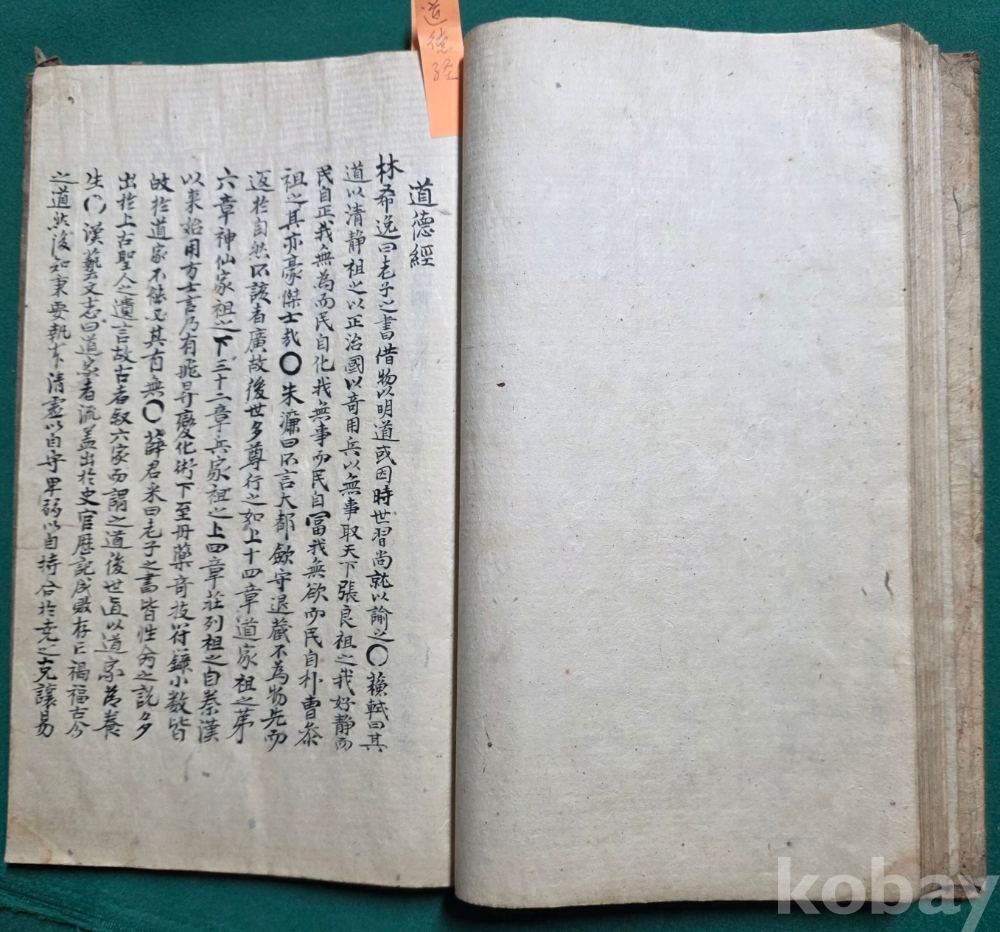 道德经
道德經
林希逸曰老子之書借物以明道或因時世習尚就以諭之〇蘇軾曰其
道以清靜祖之以正治國以奇用兵以無事取天下張良祖之我好靜而
民自正我無為而民自化我無事而民自富我無欲而民自朴曹叅
祖之其亦豪傑士哉〇朱濂曰所言大都斂守退藏不為物先而
返於自然所該者廣故後世多尊行之如上十四章道家祖之苐
六章神仙家祖之下三十二章兵家祖之上四章莊列祖之自秦漢
以來始用方士言乃有飛昇變化術下至丹藥奇技符籙小數皆
故於道家不能其有無〇薛君采曰老子之書皆性命之說多
出於上古聖人之遺言故古者六家而謂之道後世直以道家為養
生〇漢藝文志曰道家者流盖出於史官歷記成敗存亡禍福古今
之道然後知秉要執本清虛以自守卑弱以自持合於堯之克讓易
kobay